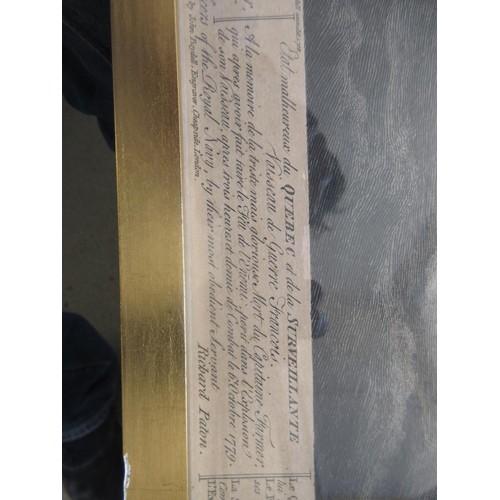 Etat malheureux du QUEBEC et de la SURVEILLANTE
Vaisseau de Guerre Francois.
A la memoire de la triste mais glorieuse Mort du Capitaine Farmer,
qui apres avoir fait faire le Feu de l'Enemi, perit dans l'Explosion
de son Vaisseau, apres trois heures et demie de Combat le 6 Octobre 1779.
cers of the Royal Navy by their most obedient Servant
Richard Paton.
by John Boydell, Engraver, Cheapside, London.